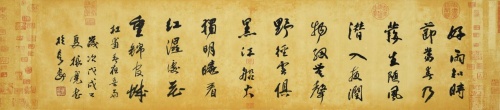 好雨知時
節當春乃
發生随風
潛入夜潤
物細無聲
野徑雲俱
黑江船火
獨明曉看
紅濕處花
重錦官城
歲次戊戌